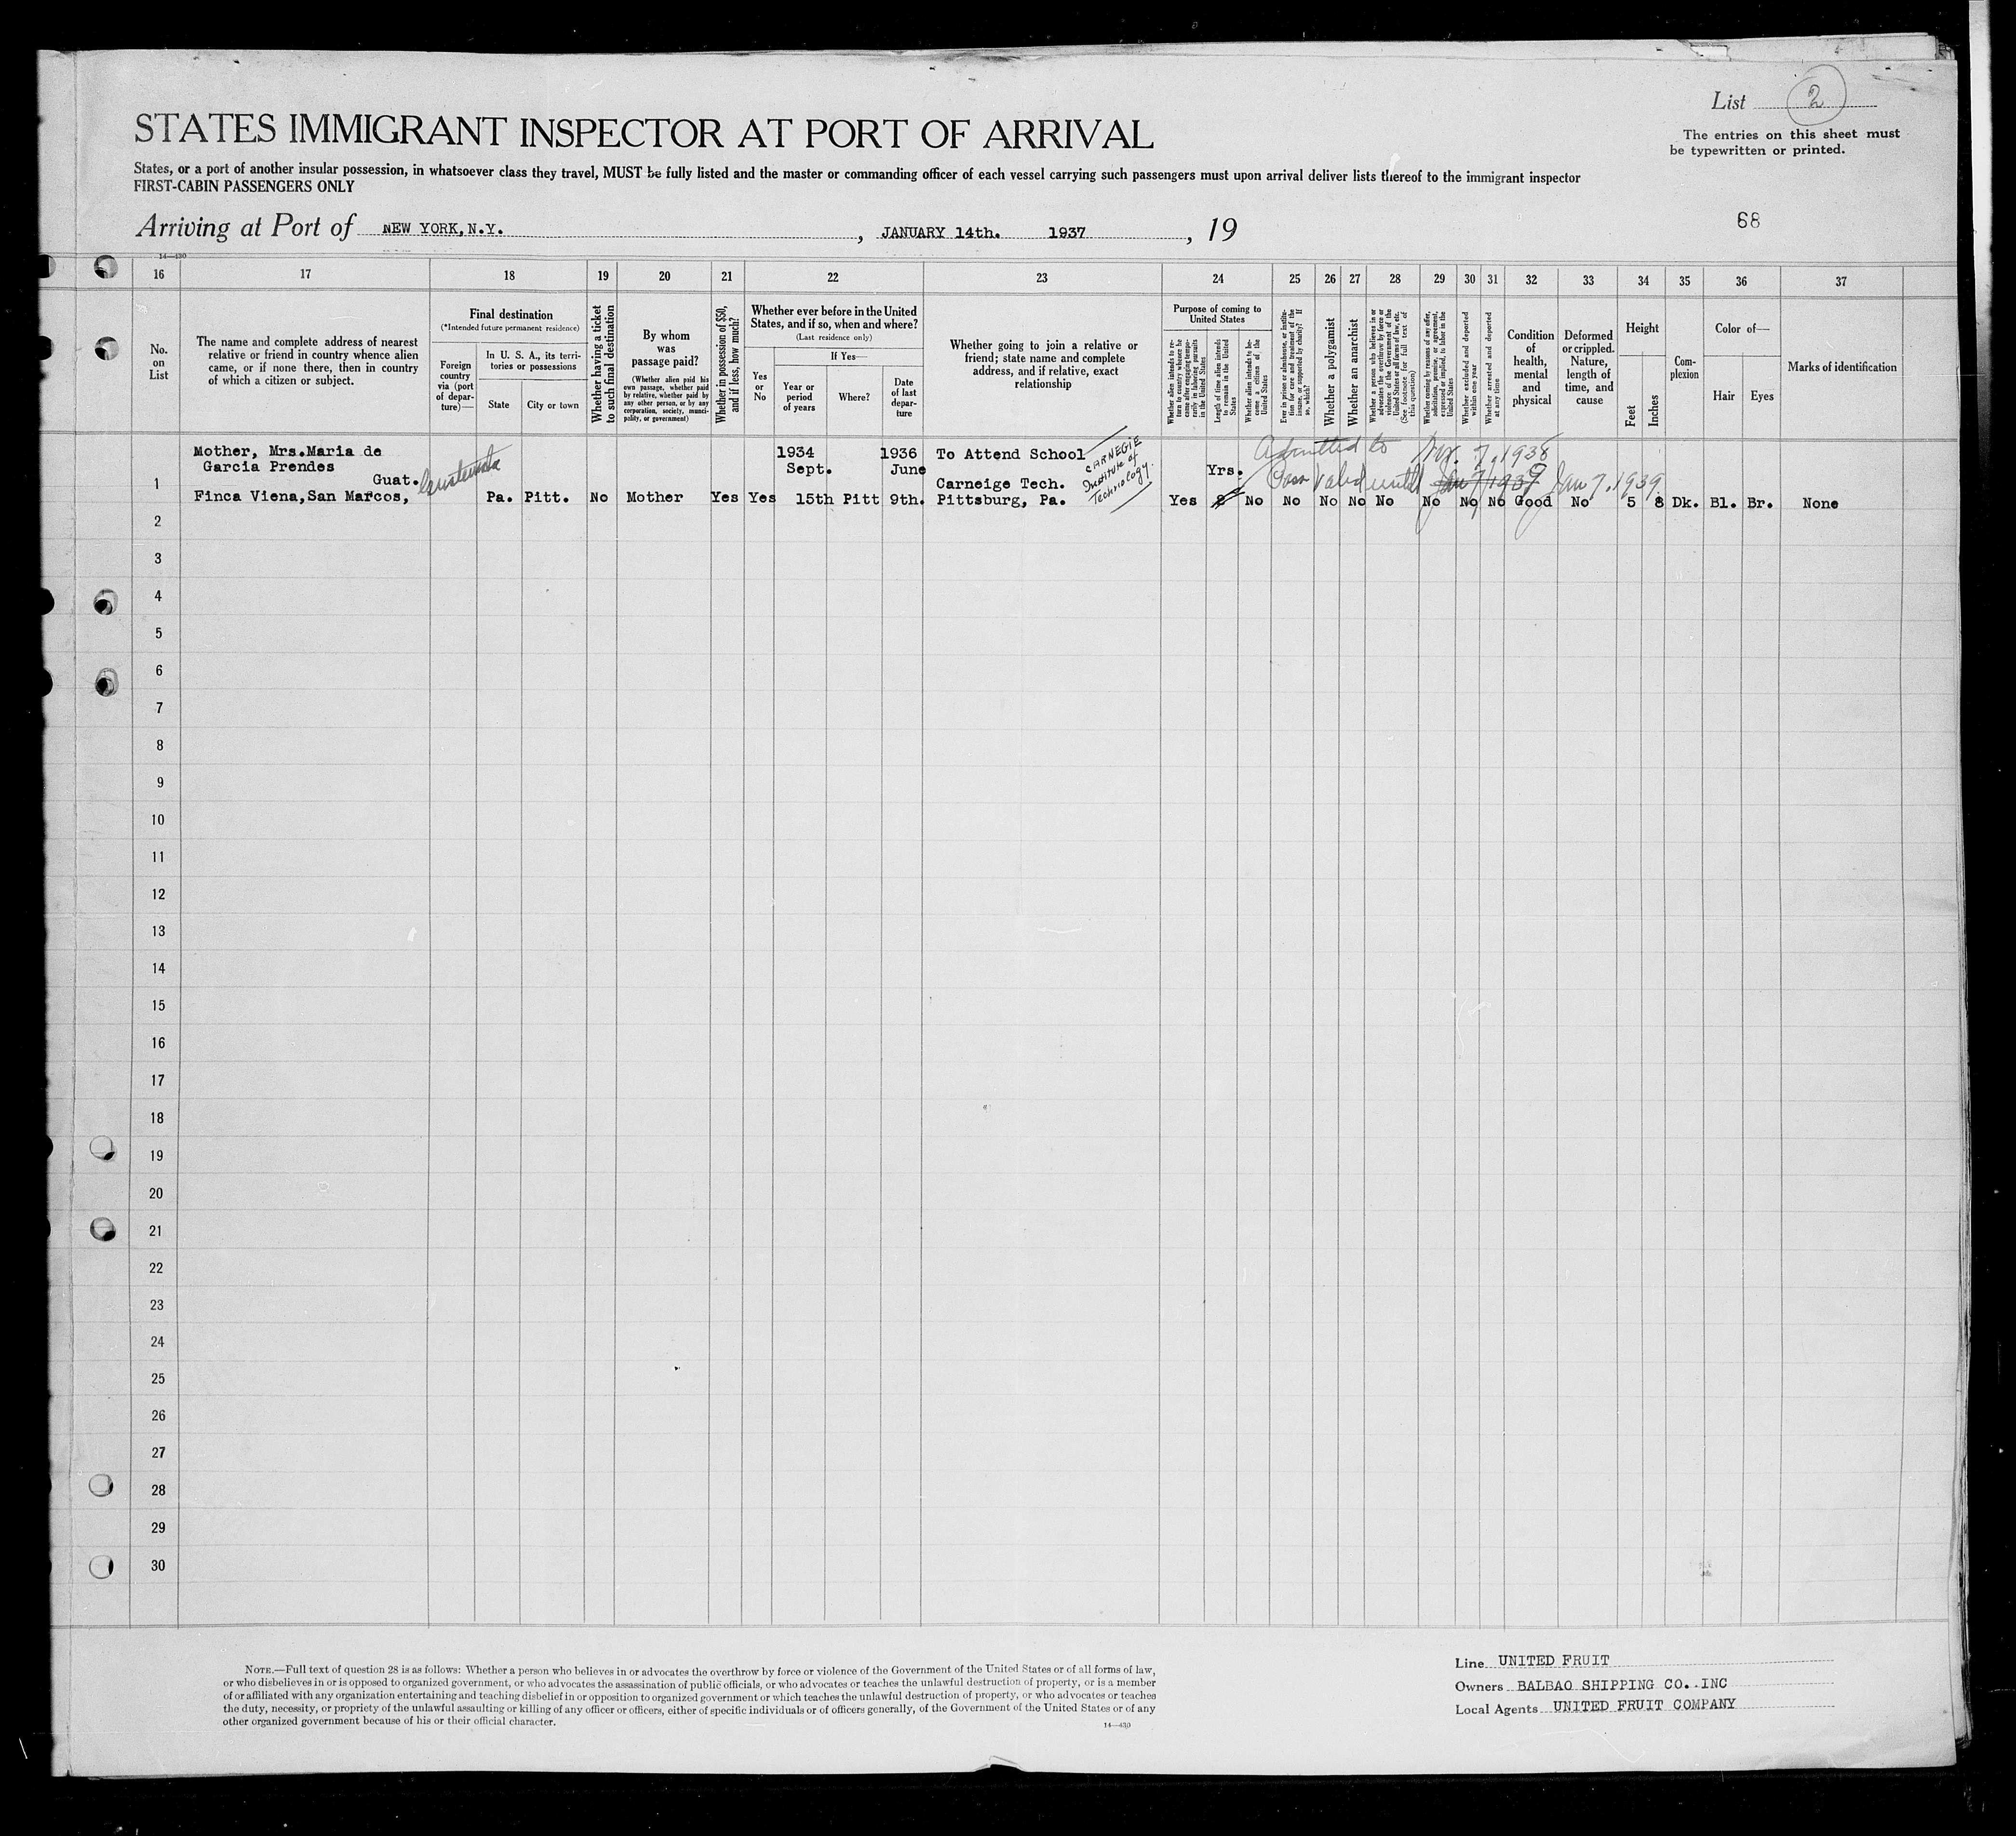 List 2
The entries on this sheet must
be typewritten or printed.
STATES IMMIGRANT INSPECTOR AT PORT OF ARRIVAL
States, or a port of another insular possession, in whatsoever class they travel, MUST be fully listed and the master or commanding officer of each vessel carrying such passengers must upon arrival deliver lists thereof to the immigrant inspector
FIRST-CABIN PASSENGERS ONLY
Arriving at Port of NEW YORK, N.Y. , JANUARY 14th. 1937 , 19
68
14—430
16 17 18 19 20 21 22 23 24 25 26 27 28 29 30 31 32 33 34 35 36 37
No. on List
The name and complete address of nearest
relative or friend in country whence alien
came, or if none there, then in country
of which a citizen or subject.
Final destination
(*Intended future permanent residence)
Foreign
country
via (port
of depar-
ture)—
In U. S. A., its terri-
tories or possessions
State
City or town
Whether having a ticket
to such final destination
By whom
was
passage paid?
(Whether alien paid his
own passage, whether paid
by relative, whether paid by
any other person, or by any
corporation, society, munici-
pality, or government)
Whether in possession of $50,
and if less, how much?
Whether ever before in the United
States, and if so, when and where?
(Last residence only)
Yes
or
No
If Yes—
Year or
period
of years
Where?
Date
of last
depar-
ture
Whether going to join a relative or
friend; state name and complete
address, and if relative, exact
relationship
Purpose of coming to
United States
Whether alien intends to re-
turn to country whence he
came after engaging tempo-
rarily in laboring pursuits
in the United States
Length of time alien intends
to remain in the United
States
Whether alien intends to be-
come a citizen of the
United States
Ever in prison or almshouse, or institu-
tion for care and treatment of the
insane, or supported by charity? If
so, which?
Whether a polygamist
Whether an anarchist
Whether a person who believes in or
advocates the overthrow by force or
violence of the Government of the
United States or all forms of law, etc.
(See footnote for full text of
this question)
Whether coming by reasons of any offer,
solicitation, promise, or agreement,
expressed or implied, to labor in the
United States
Whether excluded and deported
within one year
Whether arrested and deported
at any time
Condition
of
health,
mental
and
physical
Deformed
or crippled.
Nature,
length of
time, and
cause
Height
Feet
Inches
Com-
plexion
Color of—
Hair
Eyes
Marks of identification
Mother, Mrs.Maria de
Garcia Prendes
Guat. Guatemala
1 Finca Viena,San Marcos,
Pa. Pitt. No Mother Yes Yes
1934
Sept.
15th Pitt
1936
June
9th.
To Attend School
Carneige Tech.
Pittsburg, Pa.
CARNEGIE
Institute of
Technology.
Admitted to 7, 1938
Yrs.
Pass Valid until Jan 7 1939 Jan 7, 1939
Yes 2 No No No No No No No No Good No 5 8 Dk. Bl. Br. None
2
3
4
5
6
7
8
9
10
11
12
13
14
15
16
17
18
19
20
21
22
23
24
25
26
27
28
29
30
NOTE.—Full text of question 28 is as follows: Whether a person who believes in or advocates the overthrow by force or violence of the Government of the United States or of all forms of law,
or who disbelieves in or is opposed to organized government, or who advocates the assassination of public officials, or who advocates or teaches the unlawful destruction of property, or is a member
of or affiliated with any organization entertaining and teaching disbelief in or opposition to organized government or which teaches the unlawful destruction of property, or who advocates or teaches
the duty, necessity, or propriety of the unlawful assaulting or killing of any officer or officers, either of specific individuals or of officers generally, of the Government of the United States or of any
other organized government because of his or their official character.
14—430
Line UNITED FRUIT
Owners BALBAO SHIPPING CO..INC
Local Agents UNITED FRUIT COMPANY